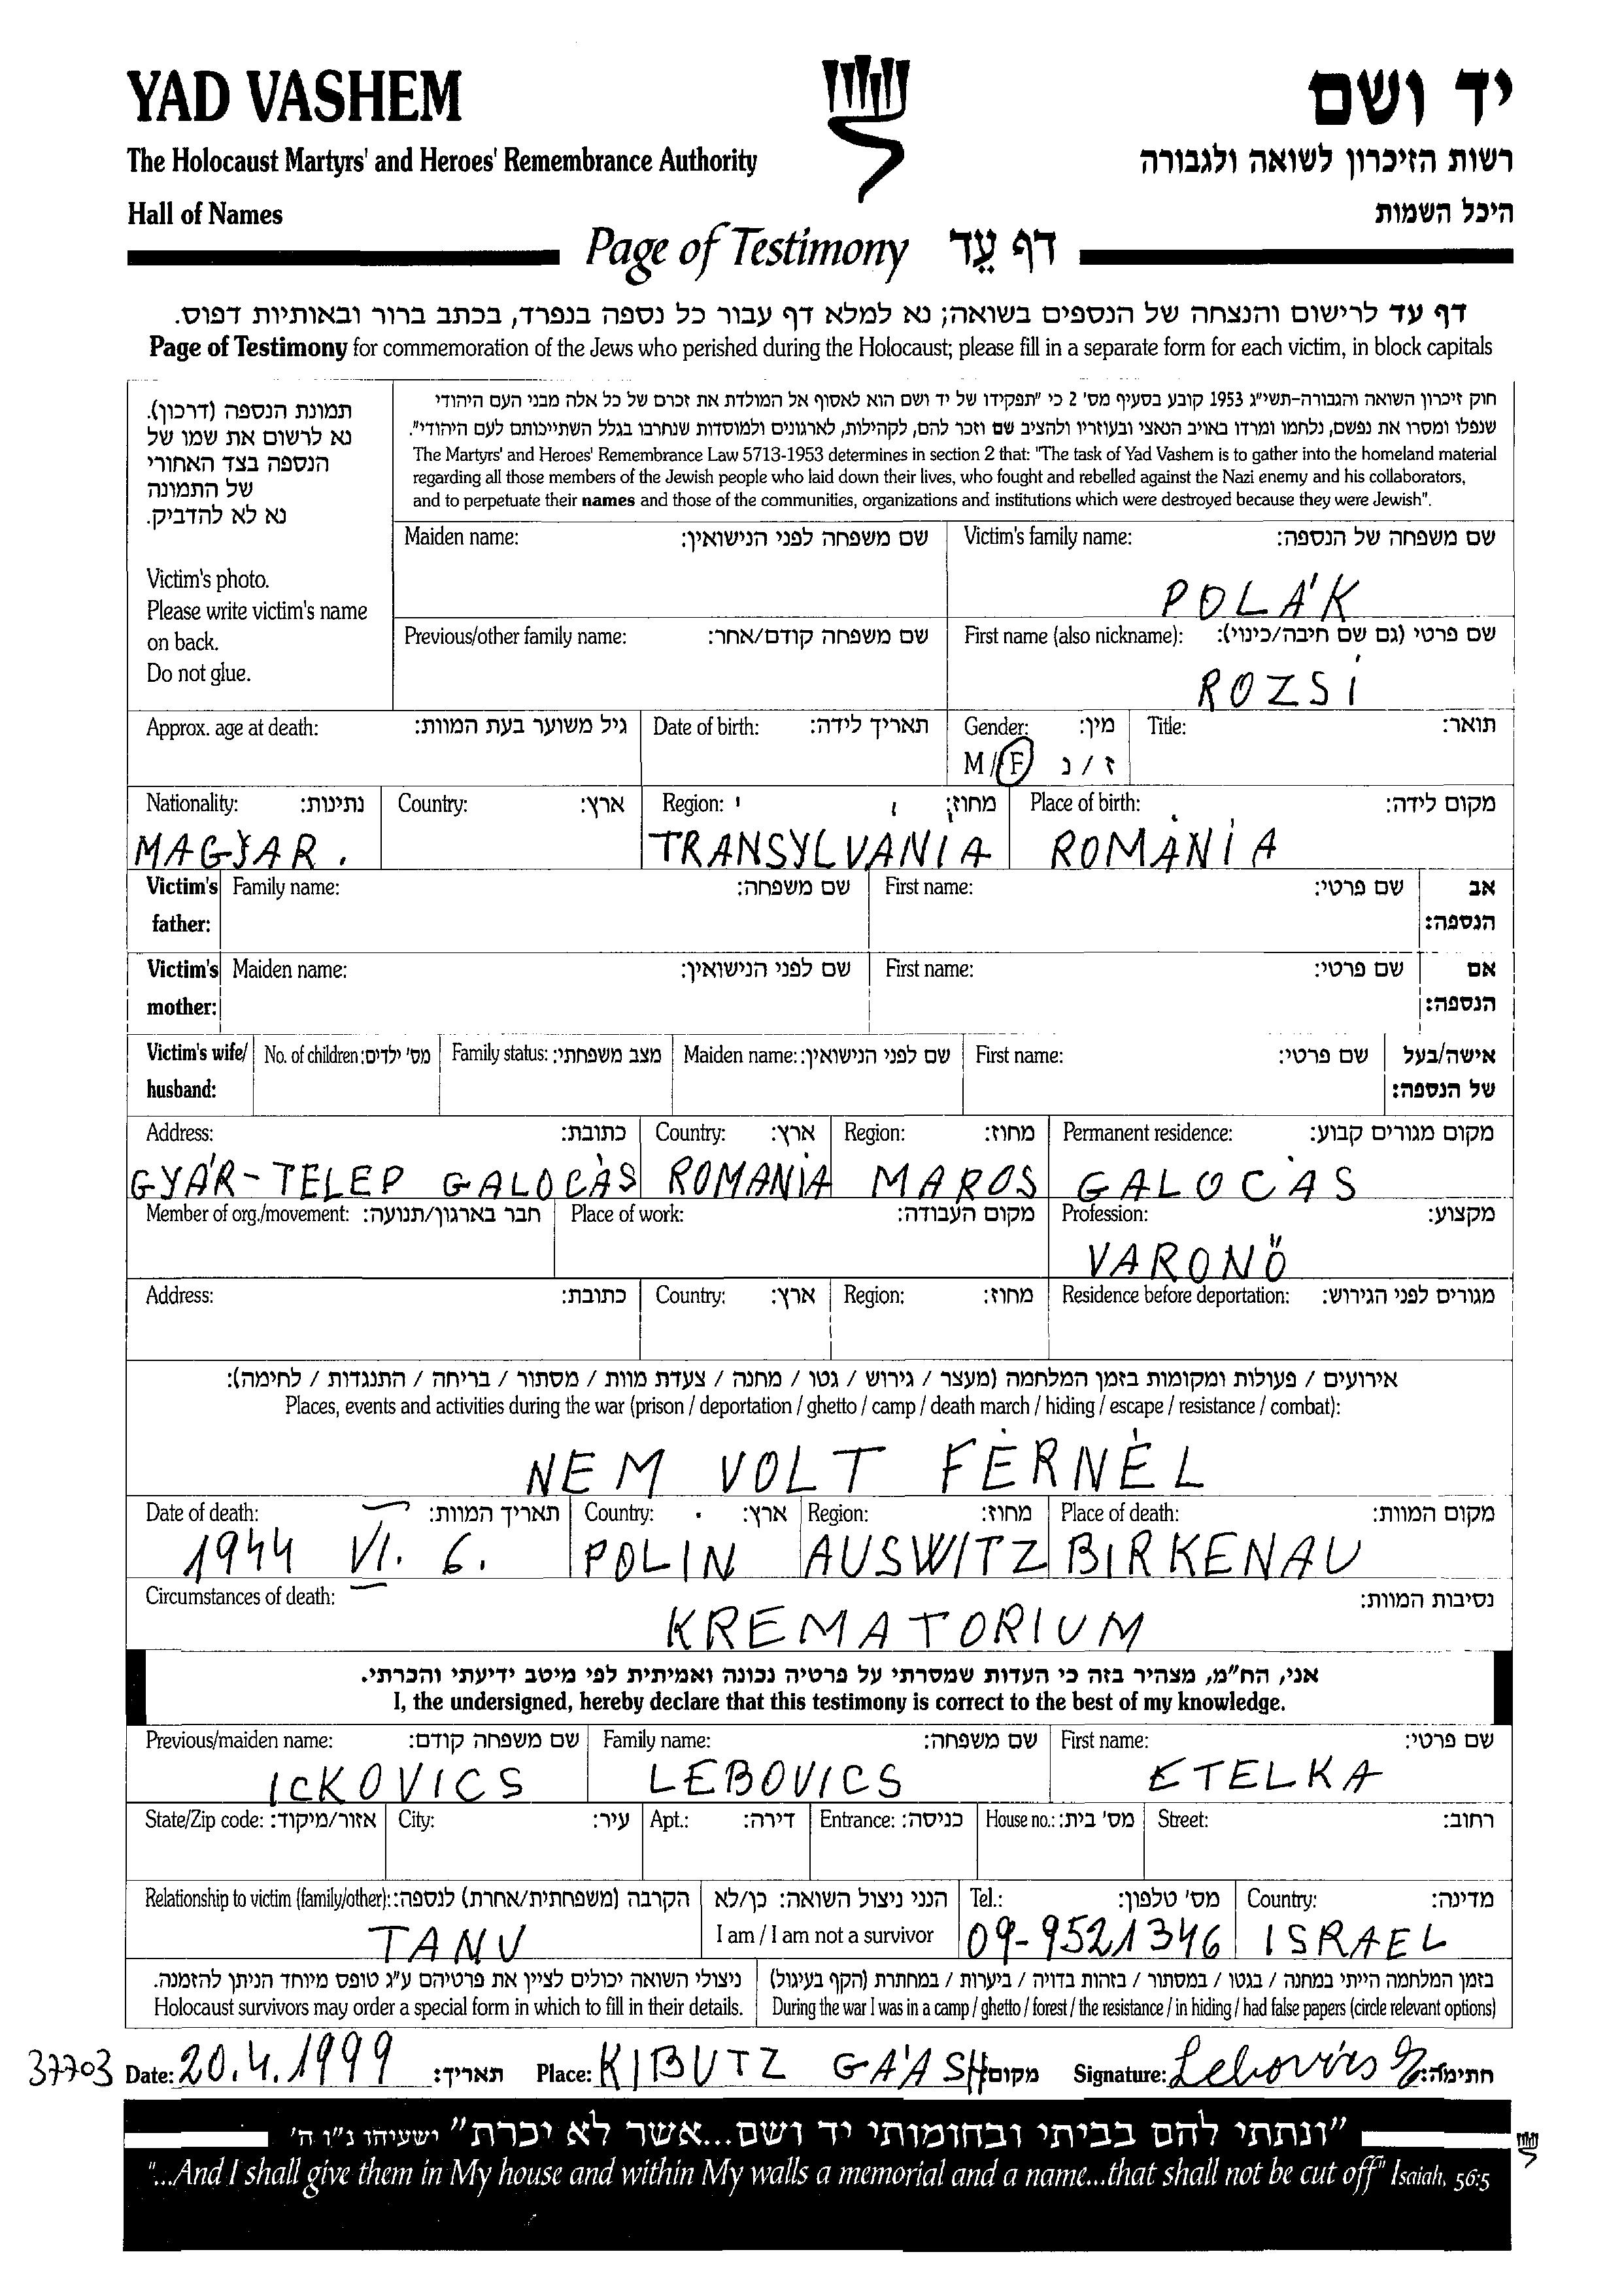 YAD VASHEM
יד ושם
The Holocaust Martyrs' and Heroes' Remembrance Authority
רשות הזיכרון לשואה ולגבורה
Hall of Names
היכל השמות
Page of Testimony דף עֵד
דף עד לרישום והנצחה של הנספים בשואה; נא למלא דף עבור כל נספה בנפרד, בכתב ברור ובאותיות דפוס.
Page of Testimony for commemoration of the Jews who perished during the Holocaust; please fill in a separate form for each victim, in block capitals
תמונת הנספה (דרכון).
נא לרשום את שמו של
הנספה בצד האחורי
של התמונה
נא לא להדביק.
Victim's photo.
Please write victim's name
on back.
Do not glue.
חוק זיכרון השואה והגבורה-תשי"ג 1953 קובע בסעיף מס' 2 כי "תפקידו של יד ושם הוא לאסוף אל המולדת את זכרם של כל אלה מבני העם היהודי
שנפלו ומסרו את נפשם, נלחמו ומרדו באויב הנאצי ובעוזריו ולהציב שם וזכר להם, לקהילות, לארגונים ולמוסדות שנחרבו בגלל השתייכותם לעם היהודי".
The Martyrs' and Heroes' Remembrance Law 5713-1953 determines in section 2 that: "The task of Yad Vashem is to gather into the homeland material
regarding all those members of the Jewish people who laid down their lives, who fought and rebelled against the Nazi enemy and his collaborators,
and to perpetuate their names and those of the communities, organizations and institutions which were destroyed because they were Jewish".
Maiden name: שם משפחה לפני הנישואין: Victim's family name: שם משפחה של הנספה:
POLÁK
Previous/other family name: שם משפחה קודם/אחר: First name (also nickname): שם פרטי (גם שם חיבה/כינוי):
ROZSI
Approx. age at death: גיל משוער בעת המוות: Date of birth: תאריך לידה: Gender: מין: Title: תואר:
M/F ז/נ
Nationality: נתינות: Country: ארץ: Region: מחוז: Place of birth: מקום לידה:
MAGYAR. TRANSYLVANIA ROMÁNIA
Victim's father: Family name: שם משפחה: First name: שם פרטי: אב הנספה:
Victim's mother: Maiden name: שם לפני הנישואין: First name: שם פרטי: אם הנספה:
Victim's wife/ husband: No. of children: מס' ילדים: Family status: מצב משפחתי: Maiden name: שם לפני הנישואין: First name: שם פרטי: אישה/בעל של הנספה:
Address: כתובת: Country: ארץ: Region: מחוז: Permanent residence: מקום מגורים קבוע:
GYÁR-TELEP GALOCÁS ROMANIA MAROS GALOCÁS
Member of org./movement: חבר בארגון/תנועה: Place of work: מקום העבודה: Profession: מקצוע:
VARONŐ
Address: כתובת: Country: ארץ: Region: מחוז: Residence before deportation: מגורים לפני הגירוש:
אירועים / פעולות ומקומות בזמן המלחמה (מעצר / גירוש / גטו / מחנה / צעדת מוות / מסתור / בריחה / התנגדות / לחימה):
Places, events and activities during the war (prison / deportation / ghetto / camp / death march / hiding / escape / resistance / combat):
NEM VOLT FÉRNÉL
Date of death: תאריך המוות: Country: ארץ: Region: מחוז: Place of death: מקום המוות:
1944 VI. 6. POLIN AUSWITZ BIRKENAU
Circumstances of death: נסיבות המוות:
KREMATORIUM
אני, הח"מ, מצהיר בזה כי העדות שמסרתי על פרטיה נכונה ואמיתית לפי מיטב ידיעתי והכרתי.
I, the undersigned, hereby declare that this testimony is correct to the best of my knowledge.
Previous/maiden name: שם משפחה קודם: Family name: שם משפחה: First name: שם פרטי:
ICKOVICS LEBOVICS ETELKA
State/Zip code: אזור/מיקוד: City: עיר: Apt.: דירה: Entrance: כניסה: House no.: מס' בית: Street: רחוב:
Relationship to victim (family/other): הקרבה (משפחתית/אחרת) לנספה: הנני ניצול השואה: כן/לא Tel.: מס' טלפון: Country: מדינה:
TANU I am / I am not a survivor 09-9521346 ISRAEL
ניצולי השואה יכולים לציין את פרטיהם ע"ג טופס מיוחד הניתן להזמנה. בזמן המלחמה הייתי במחנה / בגטו / במסתור / בזהות בדויה / ביערות / במחתרת (הקף בעיגול)
Holocaust survivors may order a special form in which to fill in their details. During the war I was in a camp / ghetto / forest / the resistance / in hiding / had false papers (circle relevant options)
37703 Date: 20.4.1999 תאריך: Place: KIBUTZ GAASH מקום Signature: Lebovics חתימה:
"ונתתי להם בביתי ובחומותי יד ושם...אשר לא יכרת" ישעיהו נ"ו ה'
"...And I shall give them in My house and within My walls a memorial and a name...that shall not be cut off" Isaiah, 56:5